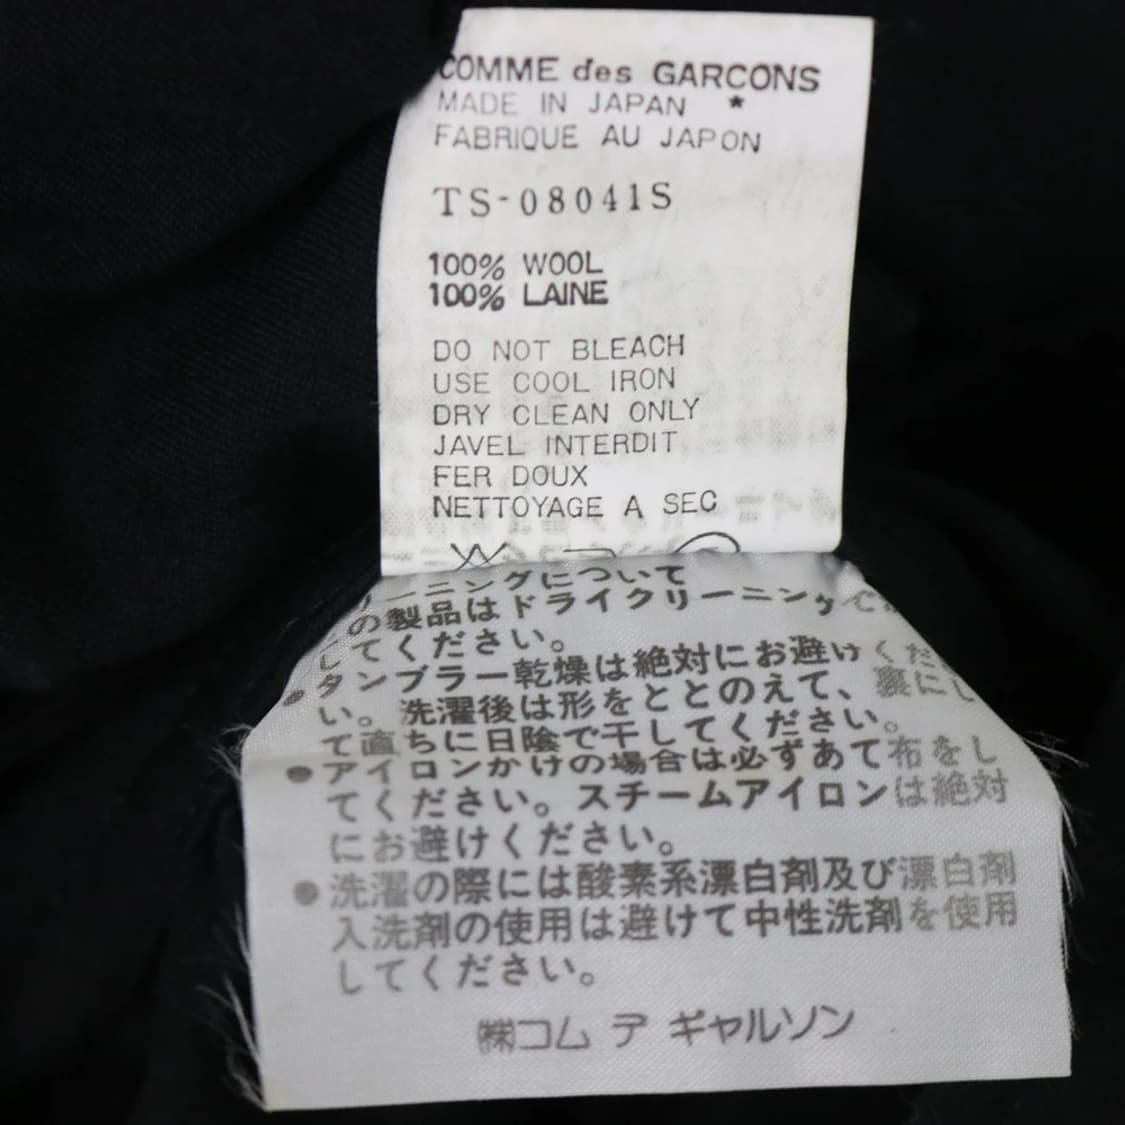 COMME des GARCONS
MADE IN JAPAN *
FABRIQUE AU JAPON
TS-08041S
100% WOOL
100% LAINE
DO NOT BLEACH
USE COOL IRON
DRY CLEAN ONLY
JAVEL INTERDIT
FER DOUX
NETTOYAGE A SEC
ーニングについて
の製品はドライクリーニングで
してください。
●タンブラー乾燥は絶対にお避けくだ
い。洗濯後は形をととのえて、裏にし
て直ちに日陰で干してください。
●アイロンかけの場合は必ずあて布をし
てください。スチームアイロンは絶対
にお避けください。
●洗濯の際には酸素系漂白剤及び漂白剤
入洗剤の使用は避けて中性洗剤を使用
してください。
㈱コム デ ギャルソン